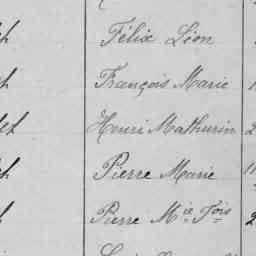 Félix Léon
François Marie
Henri Mathurin
Pierre Marie
Pierre Mie Fois